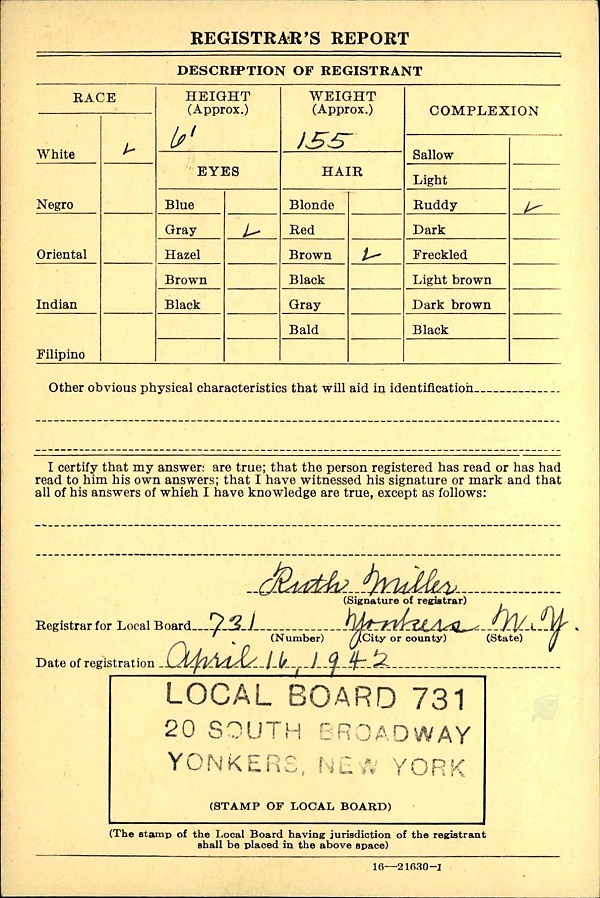 REGISTRAR'S REPORT
DESCRIPTION OF REGISTRANT
RACE
HEIGHT
(Approx.)
WEIGHT
(Approx.)
COMPLEXION
6'
155
White ✓
EYES
HAIR
Sallow
Light
Negro
Blue
Blonde
Ruddy ✓
Gray ✓
Red
Dark
Oriental
Hazel
Brown ✓
Freckled
Brown
Black
Light brown
Indian
Black
Gray
Dark brown
Bald
Black
Filipino
Other obvious physical characteristics that will aid in identification
I certify that my answers are true; that the person registered has read or has had
read to him his own answers; that I have witnessed his signature or mark and that
all of his answers of which I have knowledge are true, except as follows:
Ruth Miller
(Signature of registrar)
Registrar for Local Board 731 Yonkers N.Y.
(Number) (City or county) (State)
Date of registration April 16, 1942
LOCAL BOARD 731
20 SOUTH BROADWAY
YONKERS, NEW YORK
(STAMP OF LOCAL BOARD)
(The stamp of the Local Board having jurisdiction of the registrant
shall be placed in the above space)
16—21630-1